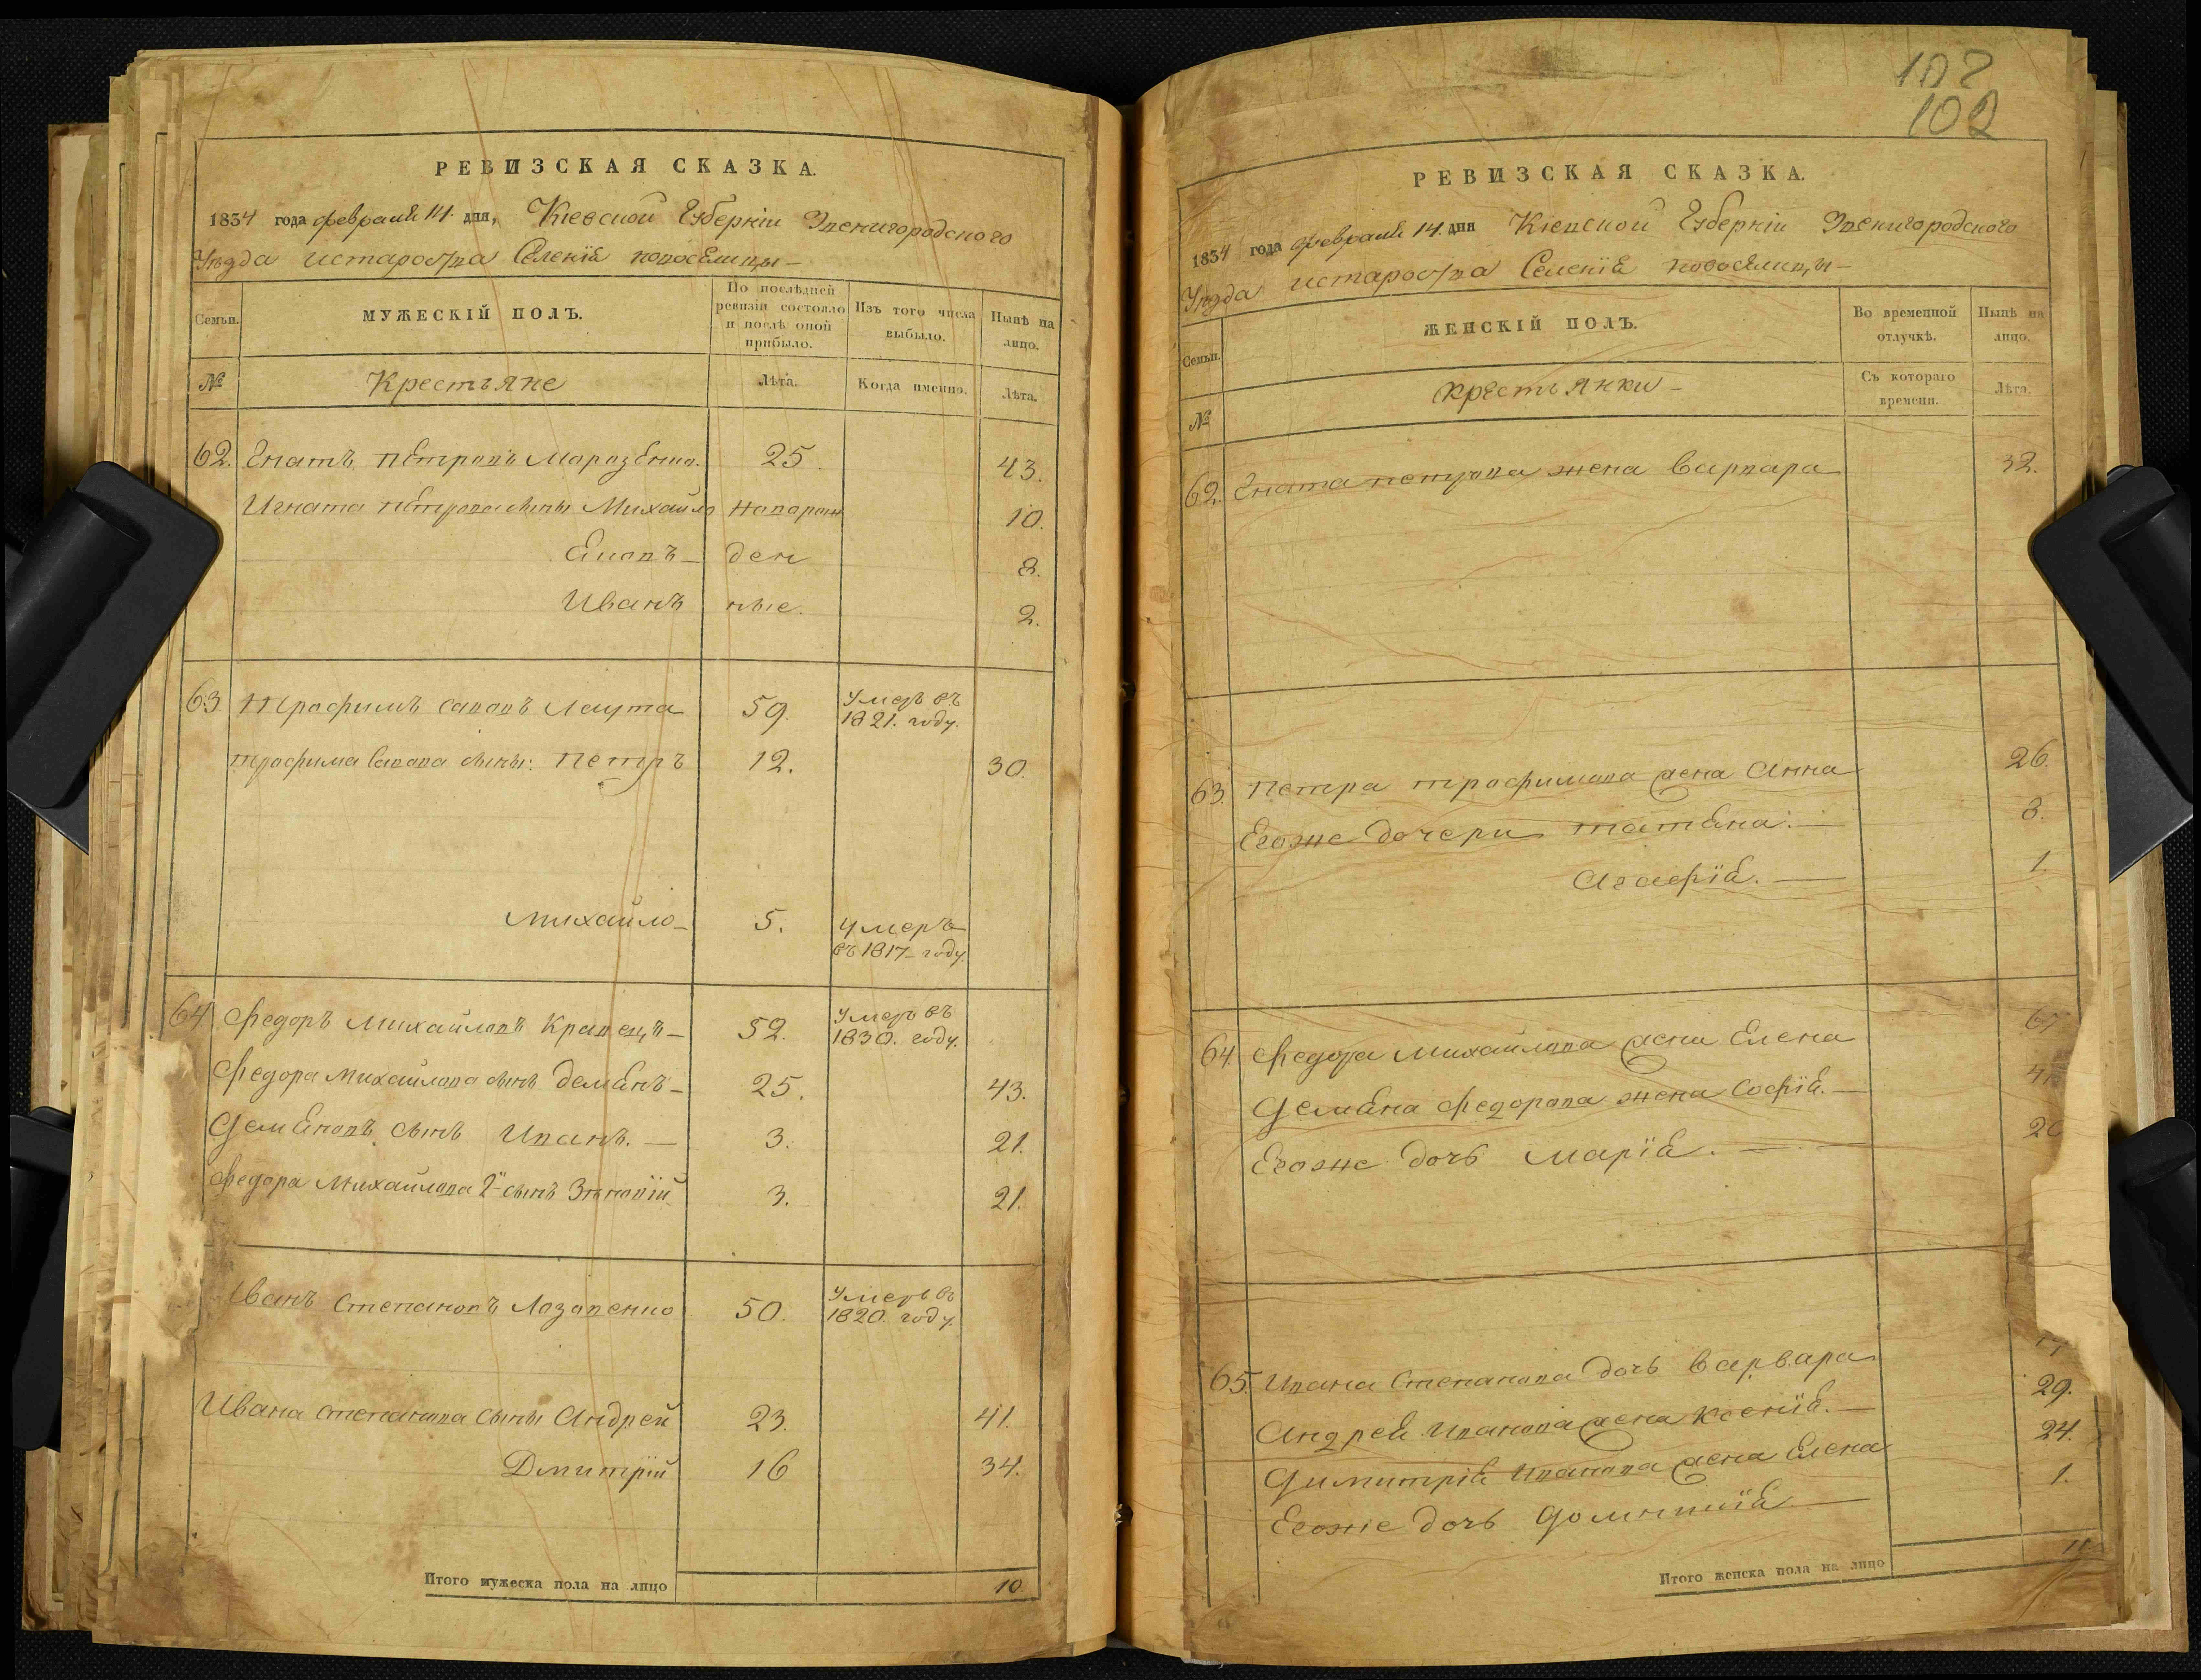 РЕВИЗСКАЯ СКАЗКА.
1834 года февраля 14. дня, Кіевской Губерніи Звенигородского
Уѣзда и староства Селенія новоселицы —
Семьи.
МУЖЕСКІЙ ПОЛЪ.
По послѣдней ревизіи состояло и послѣ оной прибыло.
Изъ того числа выбыло.
Нынѣ на лицо.
№
Крестьяне
Лѣта.
Когда именно.
Лѣта.
62. Гнатъ петровъ 25. 43.
Игната петрова сыны Михайло новорож 10.
ден 8.
Иванъ ные. 2.
63 Трофимъ савовъ Лаута 59. Умеръ въ 1821. году.
трофима Савова сыны: петръ 12. 30.
михайло — 5. умеръ въ 1817 — году.
64 Федоръ михайловъ кравецъ — 52. Умеръ въ 1830. году.
Федора михайлова сынъ демянъ — 25. 43.
Демяновъ сынъ Иванъ. — 3. 21.
Федора михайлова 2й сынъ 3. 21.
Иванъ степановъ Лозовенко 50. Умеръ въ 1820. году.
Ивана степанова сыны Андрей 23. 41.
Дмитрій 16 34.
Итого мужеска пола на лицо 10.
102
102
РЕВИЗСКАЯ СКАЗКА.
1834 года февраля 14. дня Кіевской Губерніи Звенигородского
Уѣзда и староства Селенія новоселицы —
Семьи.
ЖЕНСКІЙ ПОЛЪ.
Во временной отлучкѣ.
Нынѣ на лицо.
№
Крестьянки —
Съ котораго времени.
Лѣта.
62. Гната петрова жена варвара 32.
63. петра трофимова жена Анна 26.
Егоже дочери татяна. — 8.
Агафія. — 1.
64. Федора михайлова жена Елена
Демяна Федорова жена Софія. —
Егоже дочь марія. —
65. Ивана степанова дочь варвара
Андрея Иванова жена ксенія. — 29.
Димитрія Иванова жена Елена 24.
Егоже дочь 1.
Итого женска пола на лицо 11.